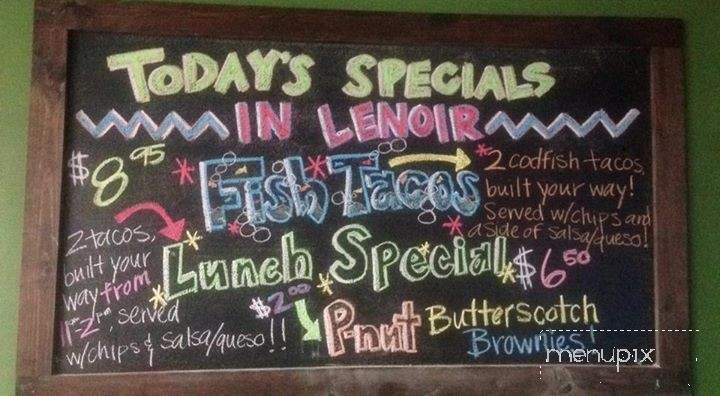 TODAY'S SPECIALS
IN LENOIR
$8 95
Fish Tacos
2 codfish tacos,
built your way!
Served w/chips and
a side of salsa/queso!
2 tacos,
built your
way from
served
w/chips & salsa/queso!!
Lunch Special
$6 50
$2.00
P-nut Butterscotch
Brownies!
menupix